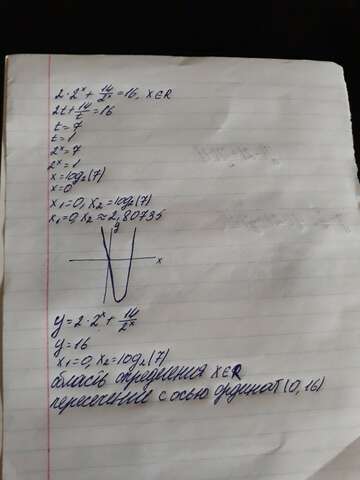 2 · 2ˣ + 14/2ˣ = 16, x∈R
2t + 14/t = 16
t = 7
t = 1
2ˣ = 7
2ˣ = 1
x = log₂(7)
x = 0
x₁ = 0, x₂ = log₂(7)
x₁ = 0, x₂ ≈ 2,80735
y
x
y = 2 · 2ˣ + 14/2ˣ
y = 16
x₁ = 0, x₂ = log₂(7)
область определения x∈R
пересечение с осью ординат (0, 16)